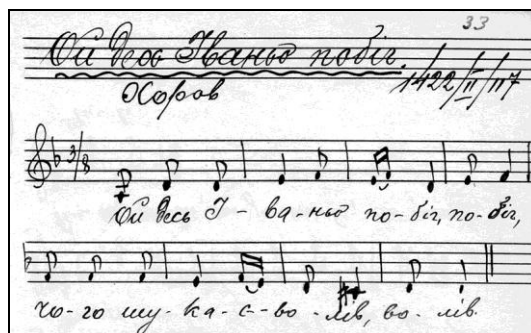 33
Ой десь Іваньо побіг.
Хоров
1422/II/117
3/8
Ой десь І - ва - ньо по - біг, по - біг,
чо - го шу - ка - є - во - лів, во - лів.